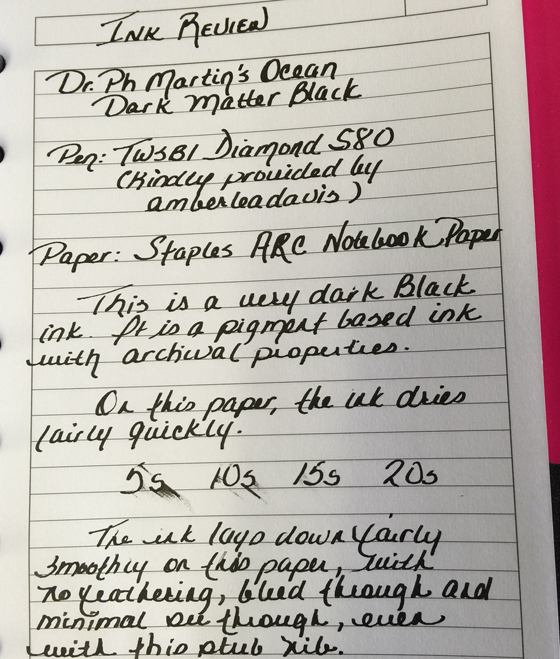 Ink Review
Dr. Ph Martin's Ocean
Dark Matter Black
Pen: TWSBI Diamond 580
(Kindly provided by
amberleadavis)
Paper: Staples ARC Notebook Paper
This is a very dark Black
ink. It is a pigment based ink
with archival properties.
On this paper, the ink dries
fairly quickly.
5s 10s 15s 20s
The ink lays down fairly
smoothly on this paper, with
no feathering, bleed through and
minimal see through, even
with this stub nib.